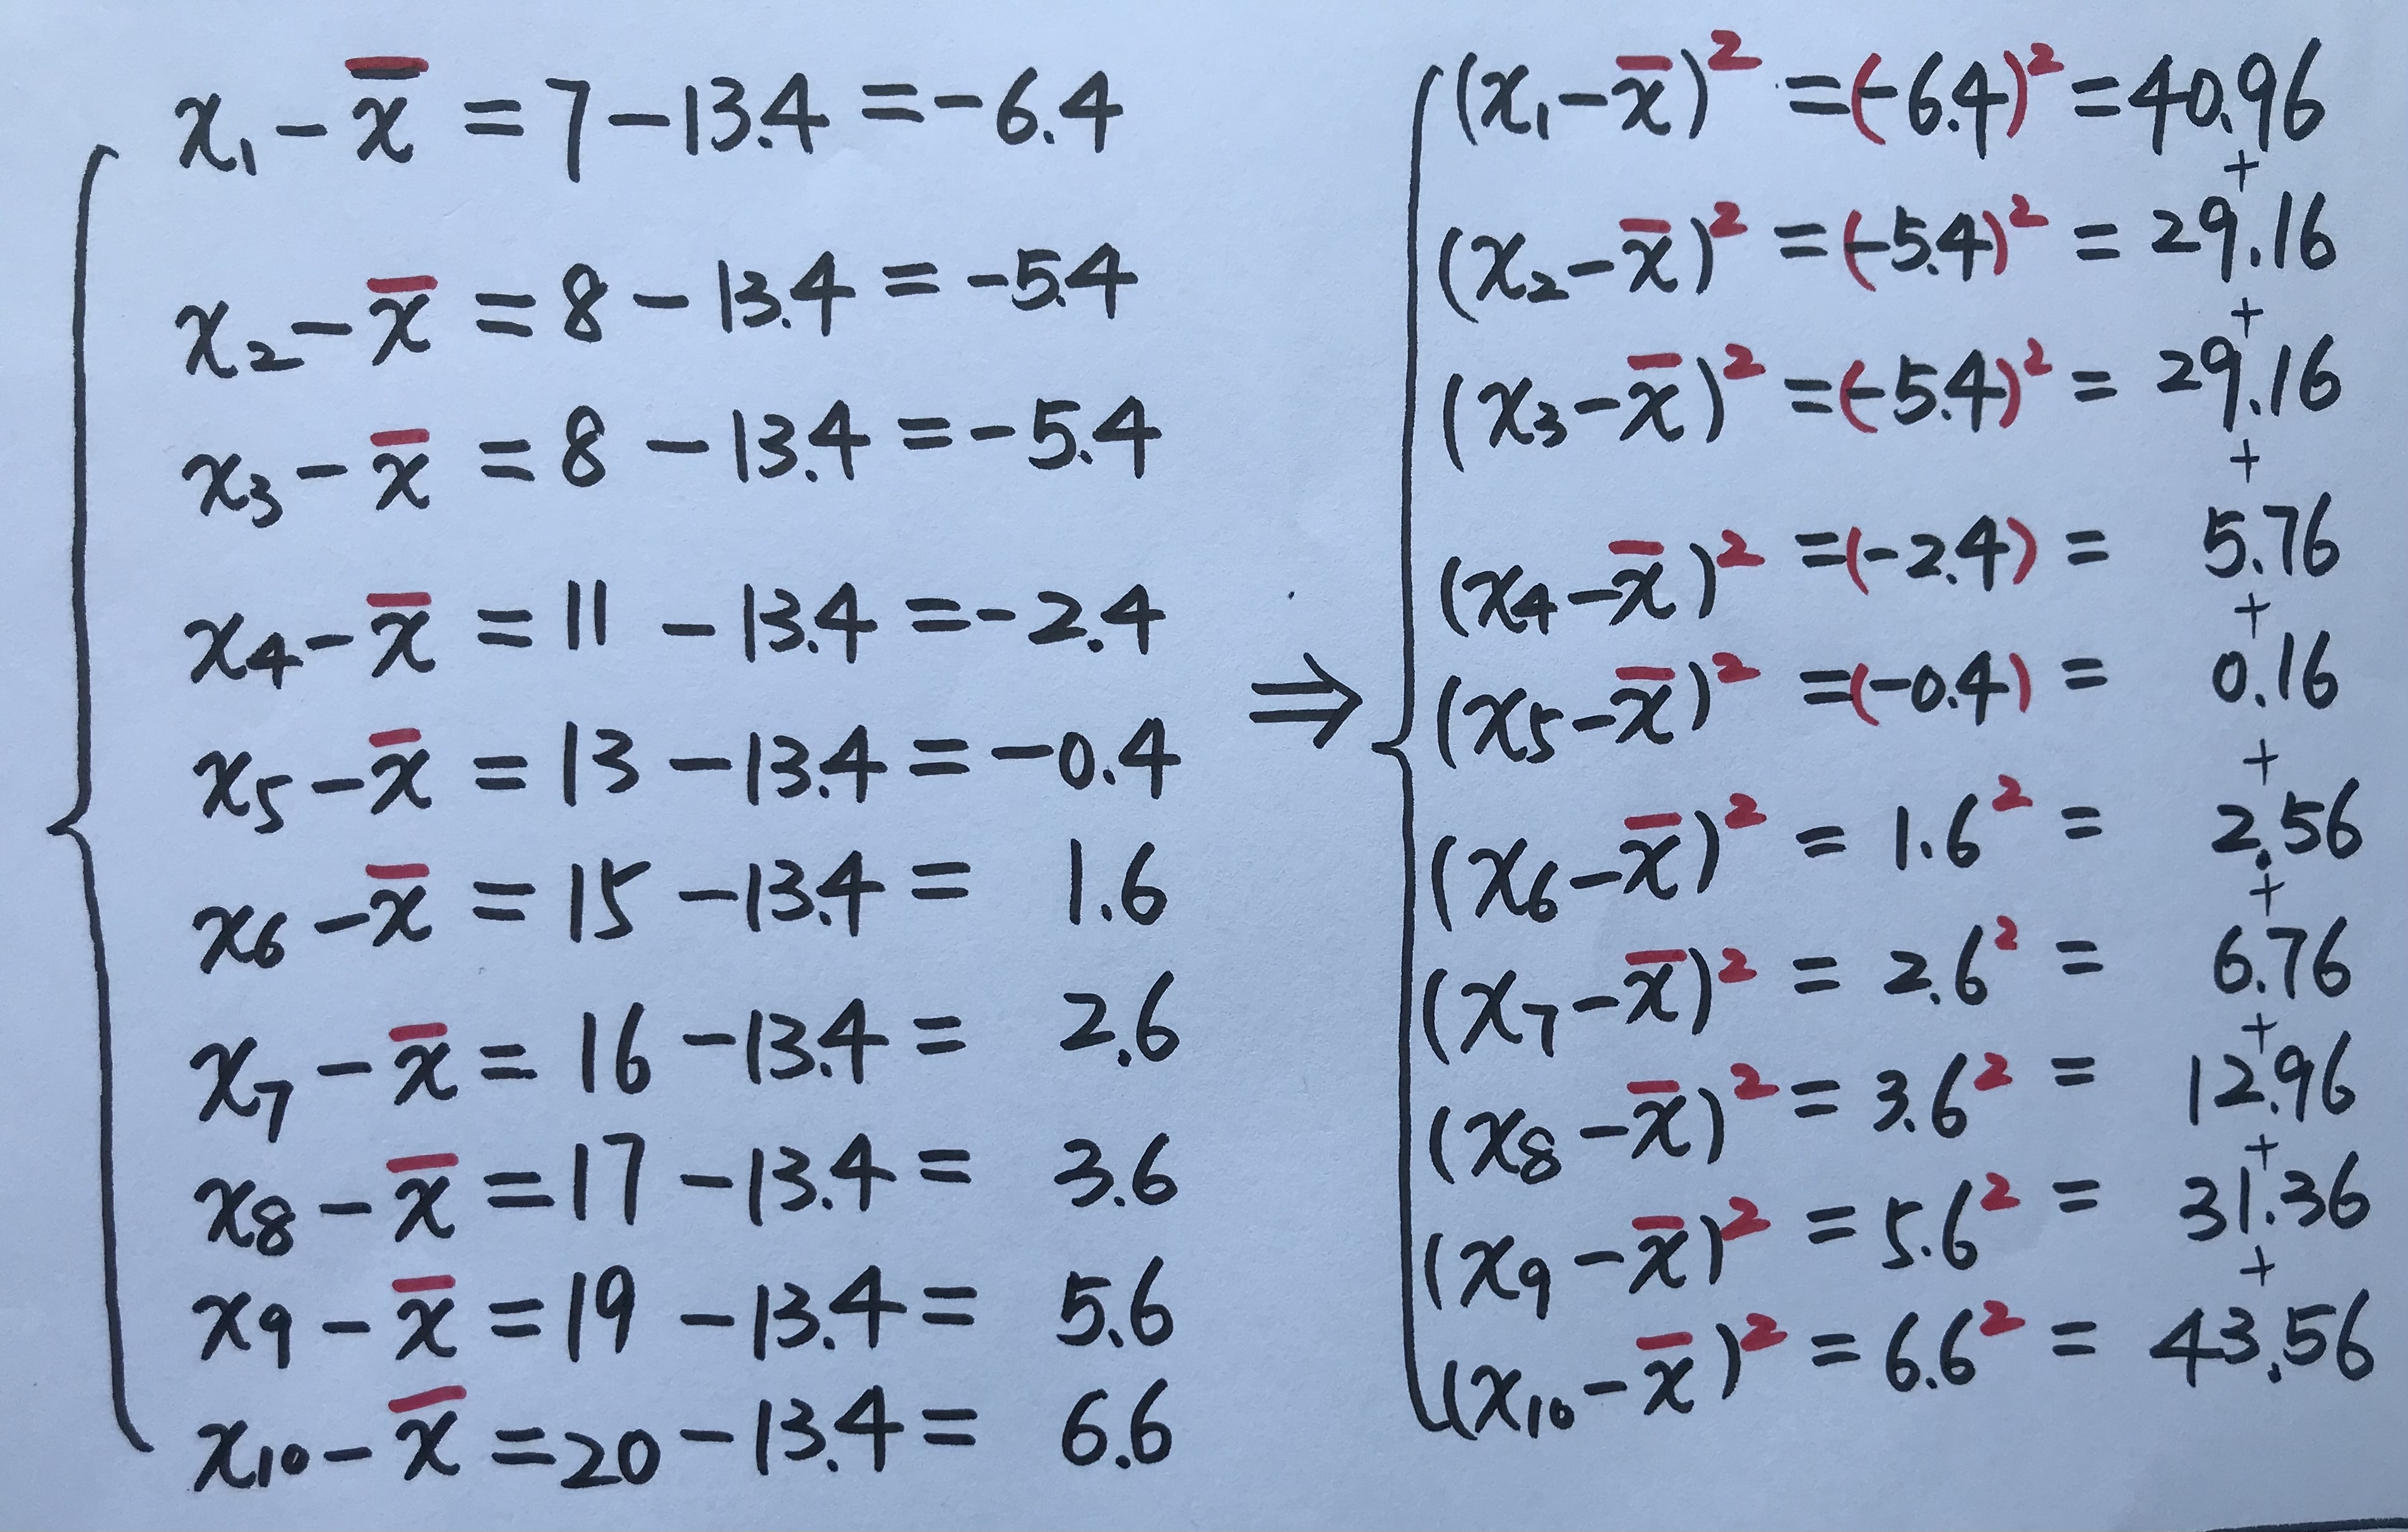 x₁ - x̄ = 7 - 13.4 = -6.4
x₂ - x̄ = 8 - 13.4 = -5.4
x₃ - x̄ = 8 - 13.4 = -5.4
x₄ - x̄ = 11 - 13.4 = -2.4
x₅ - x̄ = 13 - 13.4 = -0.4
x₆ - x̄ = 15 - 13.4 = 1.6
x₇ - x̄ = 16 - 13.4 = 2.6
x₈ - x̄ = 17 - 13.4 = 3.6
x₉ - x̄ = 19 - 13.4 = 5.6
x₁₀ - x̄ = 20 - 13.4 = 6.6
⇒
(x₁ - x̄)² = (-6.4)² = 40.96
+
(x₂ - x̄)² = (-5.4)² = 29.16
+
(x₃ - x̄)² = (-5.4)² = 29.16
+
(x₄ - x̄)² = (-2.4) = 5.76
+
(x₅ - x̄)² = (-0.4) = 0.16
+
(x₆ - x̄)² = 1.6² = 2.56
+
(x₇ - x̄)² = 2.6² = 6.76
+
(x₈ - x̄)² = 3.6² = 12.96
+
(x₉ - x̄)² = 5.6² = 31.36
+
(x₁₀ - x̄)² = 6.6² = 43.56